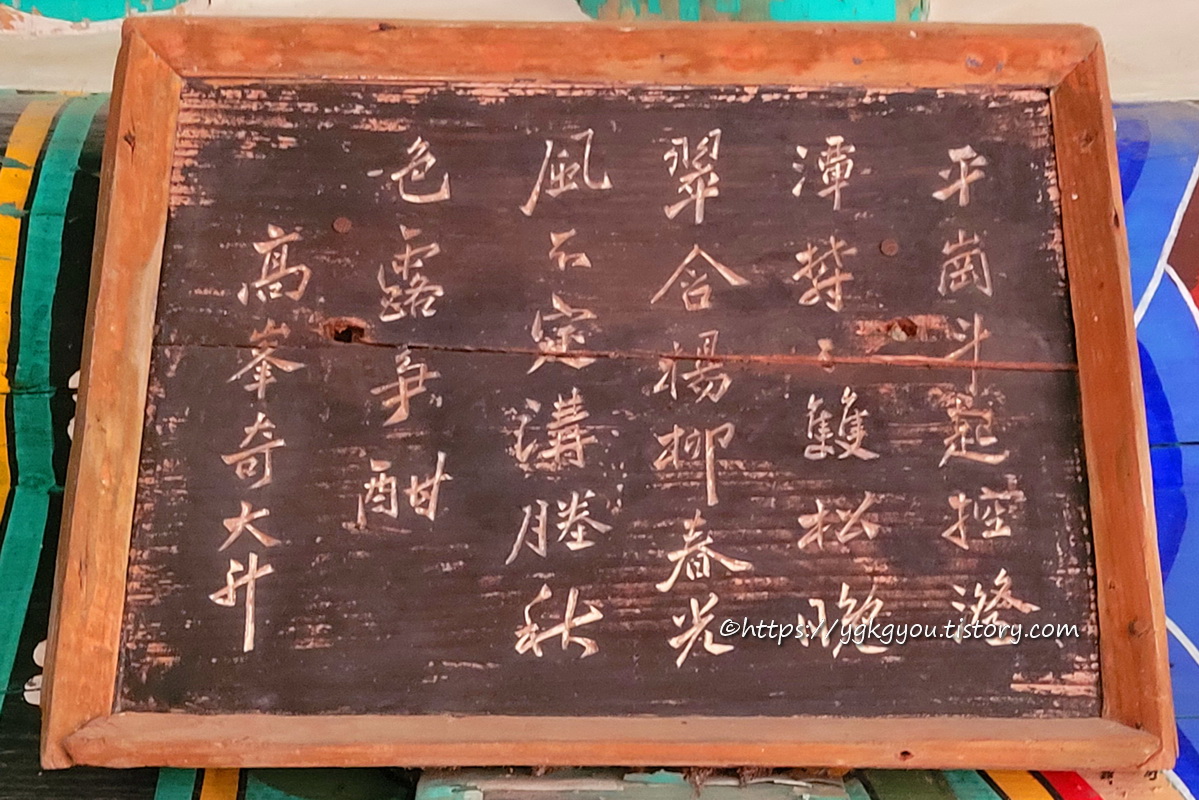 平崗斗起控澄
潭雙松晩
翠含楊柳春光
風不定溝塍秋
色露爭酣
高峯奇大升
©https://ygkgyou.tistory.com